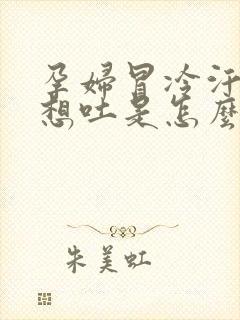 孕婦冒冷汗
想吐是怎麼
朱美虹